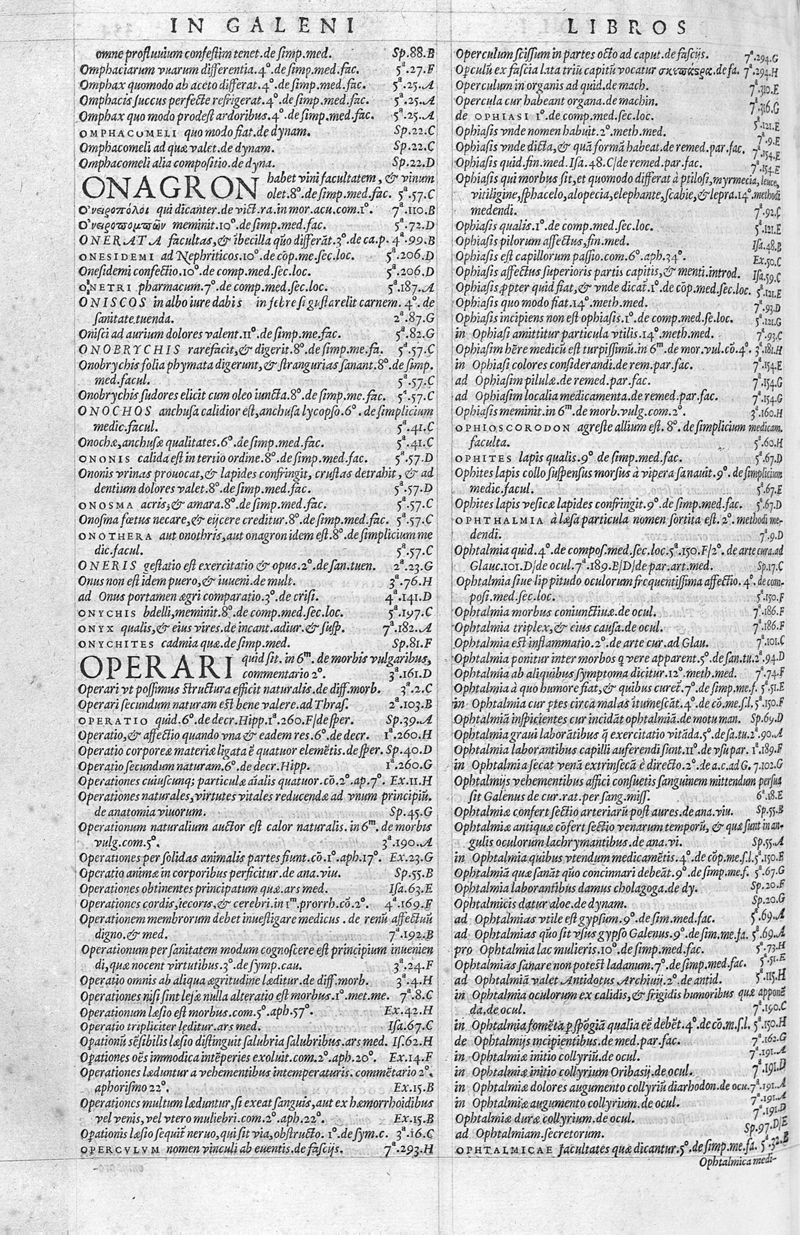 IN GALENI
omne profluuium confestim tenet. de simp. med. Sp.88.B
Omphaciarum vuarum differentia.4°. de simp.med.fac. 5ª.27.F
Omphax quomodo ab aceto differat.4°. de simp.med.fac. 5ª.25.A
Omphacis succus perfecte refrigerat.4°. de simp.med.fac. 5ª.25.A
Omphax quo modo prodest ardoribus.4°. de simp.med.fac. 5ª.25.A
OMPHACOMELI quo modo fiat.de dynam. Sp.22.C
Omphacomeli ad quæ valet.de dynam. Sp.22.C
Omphacomeli alia compositio.de dyna. Sp.22.D
ONAGRON habet vini facultatem, & vinum
olet.8°. de simp.med.fac. 5ª.57.C
Ὀνειροπόλοι qui dicanter.de vict.ra.in mor.acu.com.1°. 7ª.110.B
Ὀνειροπομπῶν meminit.10°.de simp.med.fac. 5ª.72.D
ONERATA facultas,& ībecilla quo differāt.3°.de ca.p. 4ª.99.B
ONESIDEMI ad Nephriticos.10°.de cōp.me.sec.loc. 5ª.206.D
Onesidemi confectio.10°.de comp.med.sec.loc. 5ª.206.D
ONETRI pharmacum.7°.de comp.med.sec.loc. 5ª.187.A
ONISCOS in albo iure dabis in febre si gustarelit carnem. 4°. de
sanitate.tuenda. 2ª.87.G
Onisci ad aurium dolores valent.11°.de simp.me.fac. 5ª.82.G
ONOBRYCHIS rarefacit,& digerit.8°.de simp.me.fa. 5ª.57.C
Onobrychis folia phymata digerunt,& strangurias sanant.8°.de simp.
med.facul. 5ª.57.C
Onobrychis sudores elicit cum oleo iuncta.8°.de simp.me.fac. 5ª.57.C
ONOCHOS anchusa calidior est,anchusa lycopso.6°. de simplicium
medic.facul. 5ª.41.C
Onochæ,anchusæ qualitates.6°.de simp.med.fac. 5ª.41.C
ONONIS calida est in tertio ordine.8°.de simp.med.fac. 5ª.57.D
Ononis vrinas prouocat,& lapides confringit, crustas detrahit, & ad
dentium dolores valet.8°.de simp.med.fac. 5ª.57.D
ONOSMA acris,& amara.8°.de simp.med.fac. 5ª.57.C
Onosma fœtus necare,& eijcere creditur.8°.de simp.med.fac. 5ª.57.C
ONOTHERA aut onothris,aut onagron idem est.8°.de simplicium me
dic.facul. 5ª.57.C
ONERIS gestatio est exercitatio & opus.2°.de san.tuen. 2ª.23.G
Onus non est idem puero,& iuueni.de mult. 3ª.76.H
ad Onus portamen ægri comparatio.3°.de crisi. 4ª.141.D
ONYCHIS bdelli,meminit.8°.de comp.med.sec.loc. 5ª.197.C
ONYX qualis,& eius vires.de incant.adiur.& susp. 7ª.182.A
ONYCHITES cadmia quæ.de simp.med. Sp.81.F
OPERARI quid sit. in 6ᵐ.de morbis vulgaribus,
commentario 2°. 3ª.161.D
Operari vt possimus structura efficit naturalis.de diff.morb. 3ª.2.C
Operari secundum naturam est bene valere.ad Thras. 2ª.103.B
OPERATIO quid.6°.de decr.Hipp.1ª.260.F/de sper. Sp.39.A
Operatio,& affectio quando vna & eadem res.6°.de decr. 1ª.260.H
Operatio corporeæ materiæ ligata ē quatuor elemētis.de sper. Sp.40.D
Operatio secundum naturam.6°.de decr.Hipp. 1ª.260.G
Operationes cuiuscunq; particulæ aīalis quatuor.cō.2°.ap.7°. Ex.11.H
Operationes naturales,virtutes vitales reducendæ ad vnum principiū.
de anatomia viuorum. Sp.45.G
Operationum naturalium auctor est calor naturalis.in 6ᵐ.de morbis
vulg.com.5°. 3ª.190.A
Operationes per solidas animalis partes fiunt.cō.1°.aph.17°. Ex.23.G
Operatio animæ in corporibus perficitur.de ana.viu. Sp.55.B
Operationes obtinentes principatum quæ.ars med. Isa.63.E
Operationes cordis,iecoris,& cerebri.in 1ᵐ.prorrh.cō.2°. 4ª.169.F
Operationem membrorum debet inuestigare medicus. de renū affectuū
digno.& med. 7ª.192.B
Operationum per sanitatem modum cognoscere est principium inuenien
di,quæ nocent virtutibus.3°.de symp.cau. 3ª.24.F
Operatio omnis ab aliqua ægritudine læditur.de diff.morb. 3ª.4.H
Operationes nisi sint lesæ nulla alteratio est morbus.1°.met.me. 7ª.8.C
Operationum læsio est morbus.com.5°.aph.57°. Ex.42.H
Operatio tripliciter lęditur.ars med. Isa.67.C
Opationū sēsibilis læsio distinguit salubria salubribus.ars med. Is.62.H
Opationes oēs immodica intēperies exoluit.com.2°.aph.20°. Ex.14.F
Operationes læduntur a vehementibus intemperaturis. commētario 2°.
aphorismo 22°. Ex.15.B
Operationes multum læduntur,si exeat sanguis,aut ex hæmorrhoidibus
vel venis,vel vtero muliebri.com.2°.aph.22°. Ex.15.B
Opationis læsio sequit̃ neruo,qui sit via,obstructo.1°.de sym.c. 3ª.16.C
OPERCVLVM nomen vinculi ab euentis.de fascijs. 7ª.293.H
LIBROS
Operculum scissum in partes octo ad caput.de fascijs. 7ª.294.G
Opculū ex fascia lata triū capitū vocatur .de fa. 7ª.294.H
Operculum in organis ad quid.de mach. 7ª.310.E
Opercula cur habeant organa.de machin. 7ª.316.G
de OPHIASI 1°.de comp.med.sec.loc. 5ª.121.E
Ophiasis vnde nomen habuit.2°.meth.med. 7ª.9.E
Ophiasis vnde dicta,& quā formā habeat.de remed.par.fac. 7ª.154.E
Ophiasis quid.fin.med.Isa.48.C/de remed.par.fac. 7ª.154.E
Ophiasis qui morbus sit,et quomodo differat à ptilosi,myrmecia,leuce,
vitiligine,sphacelo,alopecia,elephante,scabie,& lepra.14°.methodi
medendi. 7ª.92.C
Ophiasis qualis.1°.de comp.med.sec.loc. 5ª.121.E
Ophiasis pilorum affectus,fin.med. Isa.48.B
Ophiasis est capillorum passio.com.6°.aph.34°. Ex.50.C
Ophiasis affectus superioris partis capitis,& menti.introd. Isa.59.C
Ophiasis ppter quid fiat,& vnde dicat̃.1°.de cōp.med.sec.loc. 5ª.121.E
Ophiasis quo modo fiat.14°.meth.med. 7ª.93.D
Ophiasis incipiens non est ophiasis.1°.de comp.med.se.loc. 5ª.121.G
in Ophiasi amittitur particula vtilis.14°.meth.med. 7ª.93.C
Ophiasim hēre medicū est turpissimū.in 6ᵐ.de mor.vul.cō.4°. 3ª.181.H
in Ophiasi colores considerandi.de rem.par.fac. 7ª.154.E
ad Ophiasim pilulæ.de remed.par.fac. 7ª.154.G
ad Ophiasim localia medicamenta.de remed.par.fac. 7ª.154.G
Ophiasis meminit.in 6ᵐ.de morb.vulg.com.2°. 3ª.160.H
OPHIOSCORODON agreste allium est.8°. de simplicium medicam.
faculta. 5ª.60.H
OPHITES lapis qualis.9°.de simp.med.fac. 5ª.67.D
Ophites lapis collo suspensus morsus à vipera sanauit.9°.de simplicium
medic.facul. 5ª.67.E
Ophites lapis vesicæ lapides confringit.9°.de simp.med.fac. 5ª.67.D
OPHTHALMIA à læsa particula nomen sortita est. 2°. methodi me-
dendi. 7ª.9.D
Ophtalmia quid.4°.de compos.med.sec.loc.5ª.150.F/2°. de arte cura.ad
Glauc.101.D/de ocul.7ª.189.E/D/de par.art.med. Sp.17.C
Ophtalmia siue lippitudo oculorum frequentissima affectio.4°.de com-
posi.med.sec.loc. 5ª.150.F
Ophtalmia morbus coniunctiuæ.de ocul. 7ª.186.F
Ophtalmia triplex,& eius causa.de ocul. 7ª.186.F
Ophtalmia est inflammatio.2°.de arte cur.ad Glau. 7ª.101.C
Ophtalmia ponitur inter morbos q vere apparent.5°.de san.tu.2ª.94.D
Ophtalmia ab aliquibus symptoma dicitur.12°.meth.med. 7ª.74.F
Ophtalmia à quo humore fiat,& quibus curet̃.7°.de simp.me.f. 5ª.51.E
in Ophtalmia cur ptes circa malas itumescāt.4°.de cō.me.s.l.5ª.150.F
Ophtalmiā inspicientes cur incidāt ophtalmiā.de motu man. Sp.69.D
Ophtalmia graui laborātibus q exercitatio vitāda.5°.de sa.tu.2ª.90.A
Ophtalmia laborantibus capilli auferendi sunt.11°.de vsu par. 1ª.189.F
in Ophtalmia secat venā extrinsecā è directo.2°.de a.c.ad G. 7.102.G
Ophtalmijs vehementibus affici consuetis sanguinem mittendum persua
sit Galenus de cur.rat.per sang.miss. 6ª.18.E
Ophtalmiæ confert sectio arteriarū post aures.de ana.viu. Sp.55.B
Ophtalmiæ antiquæ cōfert sectio venarum temporū, & quæ sunt in an-
gulis oculorum lachrymantibus.de ana.vi. Sp.55.A
in Ophtalmia quibus vtendum medicamētis.4°.de cōp.me.s.l.5ª.150.E
Ophtalmiā quæ sanāt quo concinnari debeāt.9°.de simp.me.f. 5ª.67.G
Ophtalmia laborantibus damus cholagoga.de dy. Sp.20.F
Ophtalmicis datur aloe.de dynam. Sp.20.G
ad Ophtalmias vtile est gypsum.9°.de sim.med.fac. 5ª.69.A
ad Ophtalmias quo sit vsus gypso Galenus.9°.de sim.me.fa. 5ª.69.A
pro Ophtalmia lac mulieris.10°.de simp.med.fac. 5ª.73.H
Ophtalmias sanare non potest ladanum.7°.de simp.med.fac. 5ª.51.E
ad Ophtalmiā valet Antidotus Archiuij.2°.de antid. 5ª.115.H
in Ophtalmia oculorum ex calidis,& frigidis humoribus quæ apponē
da.de ocul. 7ª.190.C
in Ophtalmia fomēta p spōgiā qualia eē debēt.4°.de cō.m.s.l.5ª.150.H
de Ophtalmijs incipientibus.de med.par.fac. 7ª.162.G
in Ophtalmiæ initio collyriū.de ocul. 7ª.191.A
in Ophtalmiæ initio collyrium Oribasij.de ocul. 7ª.191.D
in Ophtalmiæ dolores augumento collyriū diarhodon.de ocu.7ª.191.A
in Ophtalmiæ augumento collyrium.de ocul. 7ª.191.A
Ophtalmiæ duræ collyrium.de ocul. 7ª.191.D
ad Ophtalmiam.secretorum. Sp.97.D/E
OPHTALMICAE facultates quæ dicantur.5°.de simp.me.fa. 5ª.32.B
Ophtalmica medi-